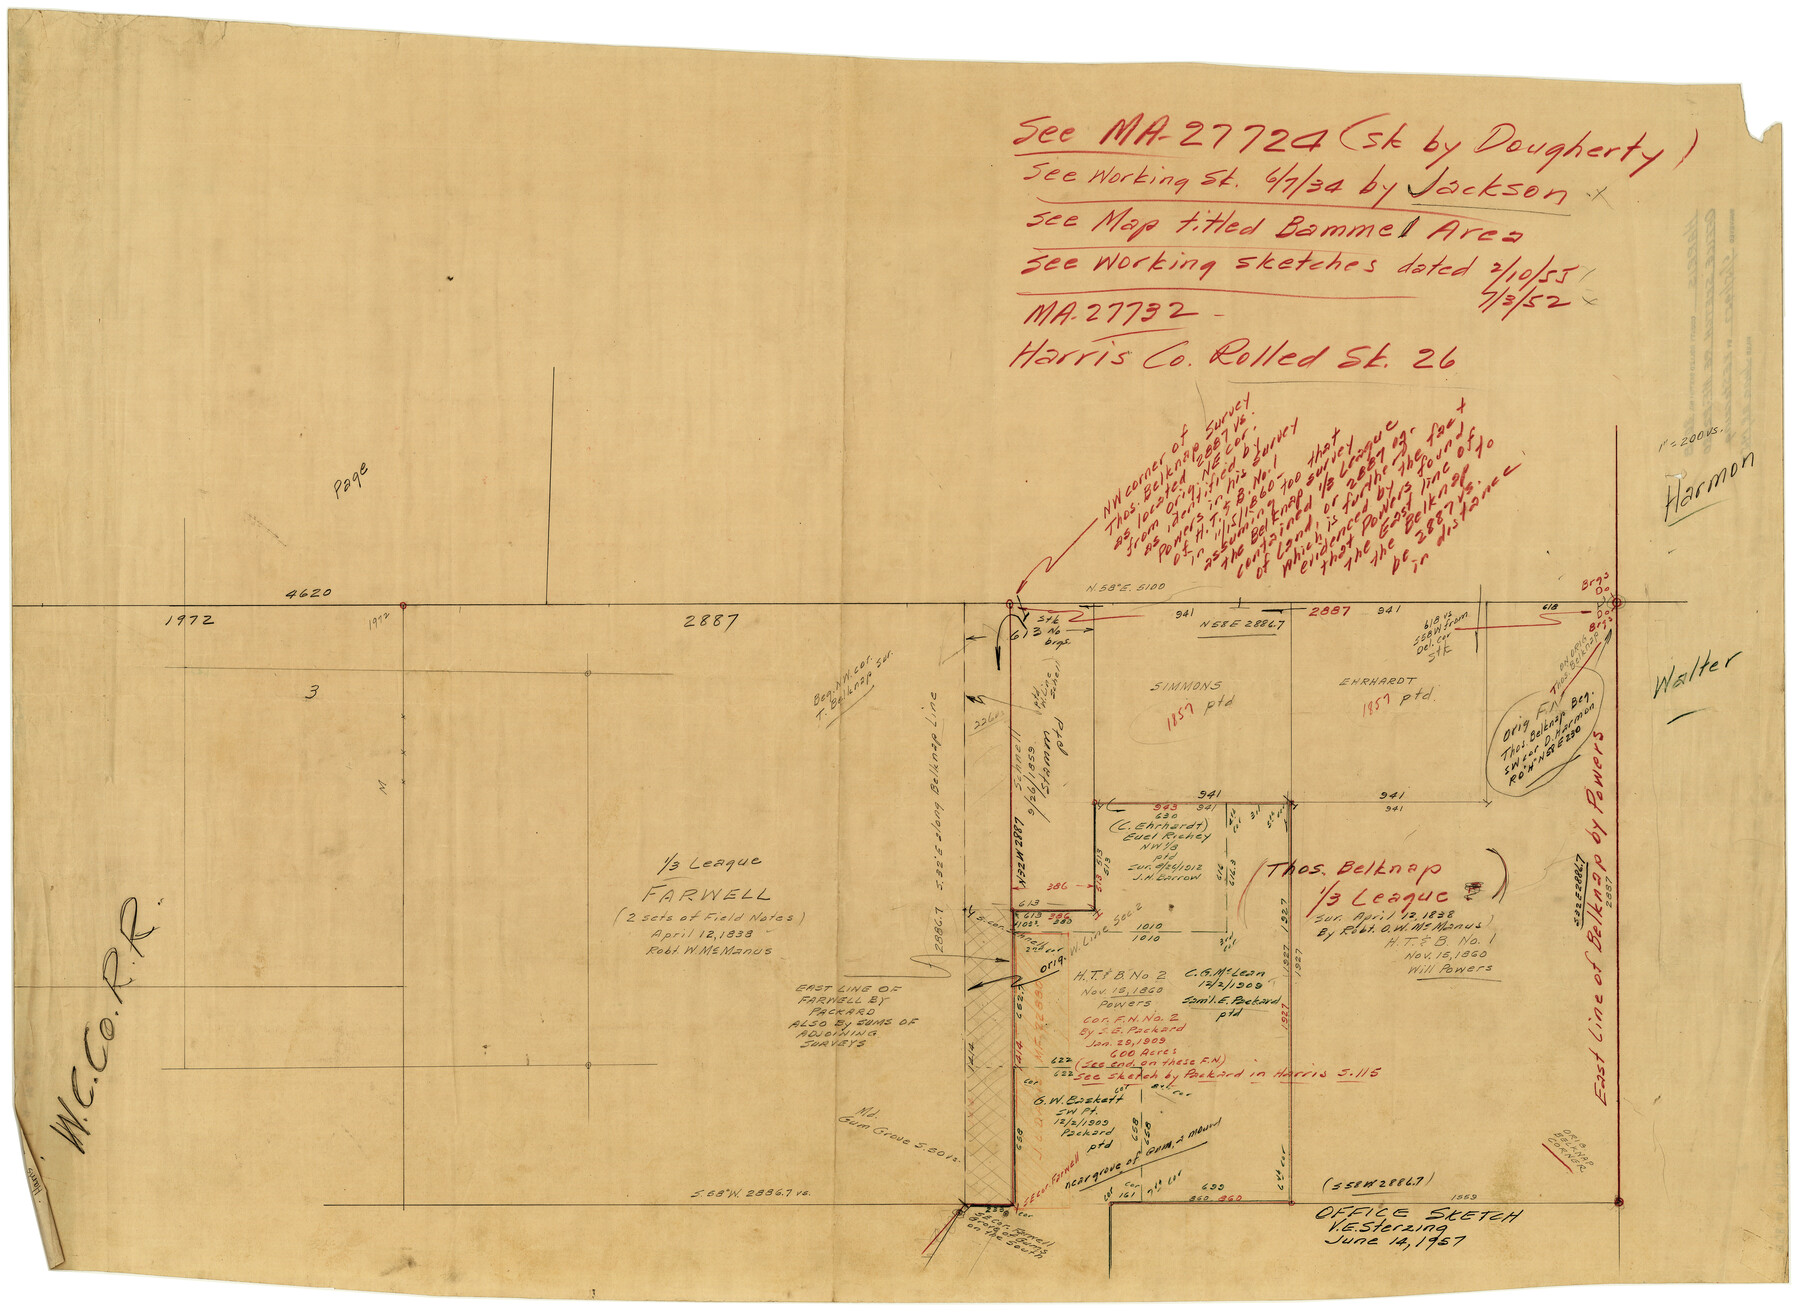 See MA-27724 (sk by Dougherty)
See Working Sk. 6/7/34 by Jackson x
See Map titled Bammel Area
See Working Sketches dated 2/10/55
7/3/52 x
MA-27732 -
Harris Co. Rolled Sk. 26
NW corner of
Thos. Belknap Survey
as located 2887 vs.
from orig. NE cor.
as identified by
Powers in his survey
of H.T.&B. No. 1
in 11/15/1860-
assuming too that
the Belknap survey
contained 1/3 League
of Land, or 2887 vs.
which is further
evidenced by the fact
that Powers found
the East line of
the Belknap to
be 2887 vs.
in distance
1" = 200 vs.
Harmon
Walter
Page
4620
1972
1972
2887
3
M
W.C.Co.R.R.
Harris
1/3 League
FARWELL
(2 sets of Field Notes)
April 12, 1838
Robt. W. McManus
EAST LINE OF
FARWELL BY
PACKARD
ALSO BY SUMS OF
ADJOINING
SURVEYS
Beg. N.W. cor.
T. Belknap Sur.
2886.7 S.32°E along Belknap Line
Md.
Gum Grove S.80 W.
S.58°W. 2886.7 vs.
N.58°E. 5100
941
2887
941
618
N58E 2886.7
613
Stk
No
brgs
618 vs
S58W from
Del. cor
Stk
Brgs
Do
Do
Brgs
ON ORIG
Thos. Belknap
Orig F.N.
Thos. Belknap Beg.
SW cor D. Harmon
SIMMONS
1857 ptd
EHRHARDT
1857 ptd.
Schnell
9/26/1859
Stamm
ptd
N32W 2887
386
613
613
613
386
941
943
941
941
941
630
(C. Ehrhardt)
Euel Richey
NW 1/8
ptd
Sur. 8/26/1912
J.H. Barrow
616
616.3
(Thos. Belknap)
1/3 League
Sur. April 12, 1838
By Robt. O.W. McManus
H.T.&B. No. 1
Nov. 15, 1860
Will Powers
1927
1927
1927
1927
S32E 2886.7
2887
East Line of Belknap by Powers
1010
1010
orig. W. Line Sec 2
H.T.&B. No 2
Nov. 15, 1860
Powers
C.G. McLean
12/2/1909
Saml. E. Packard
ptd
Cor. F.N. No. 2
By S.E. Packard
Jan. 29, 1909
600 Acres
(See end. on these F.N.)
See Sketch by Packard in Harris S.115
622
622
1414
1414
658
658
658
G.W. Baskett
SW Pt.
12/2/1909
Packard
ptd
SE cor Farwell
near grove of Gum, 2 mound
699
860
860
161
SE Cor. Farwell
Grove of Gums
on the South
ORIG
BELKNAP
CORNER
(S58W 2886.7)
1959
OFFICE SKETCH
V.E. Sterzing
June 14, 1957